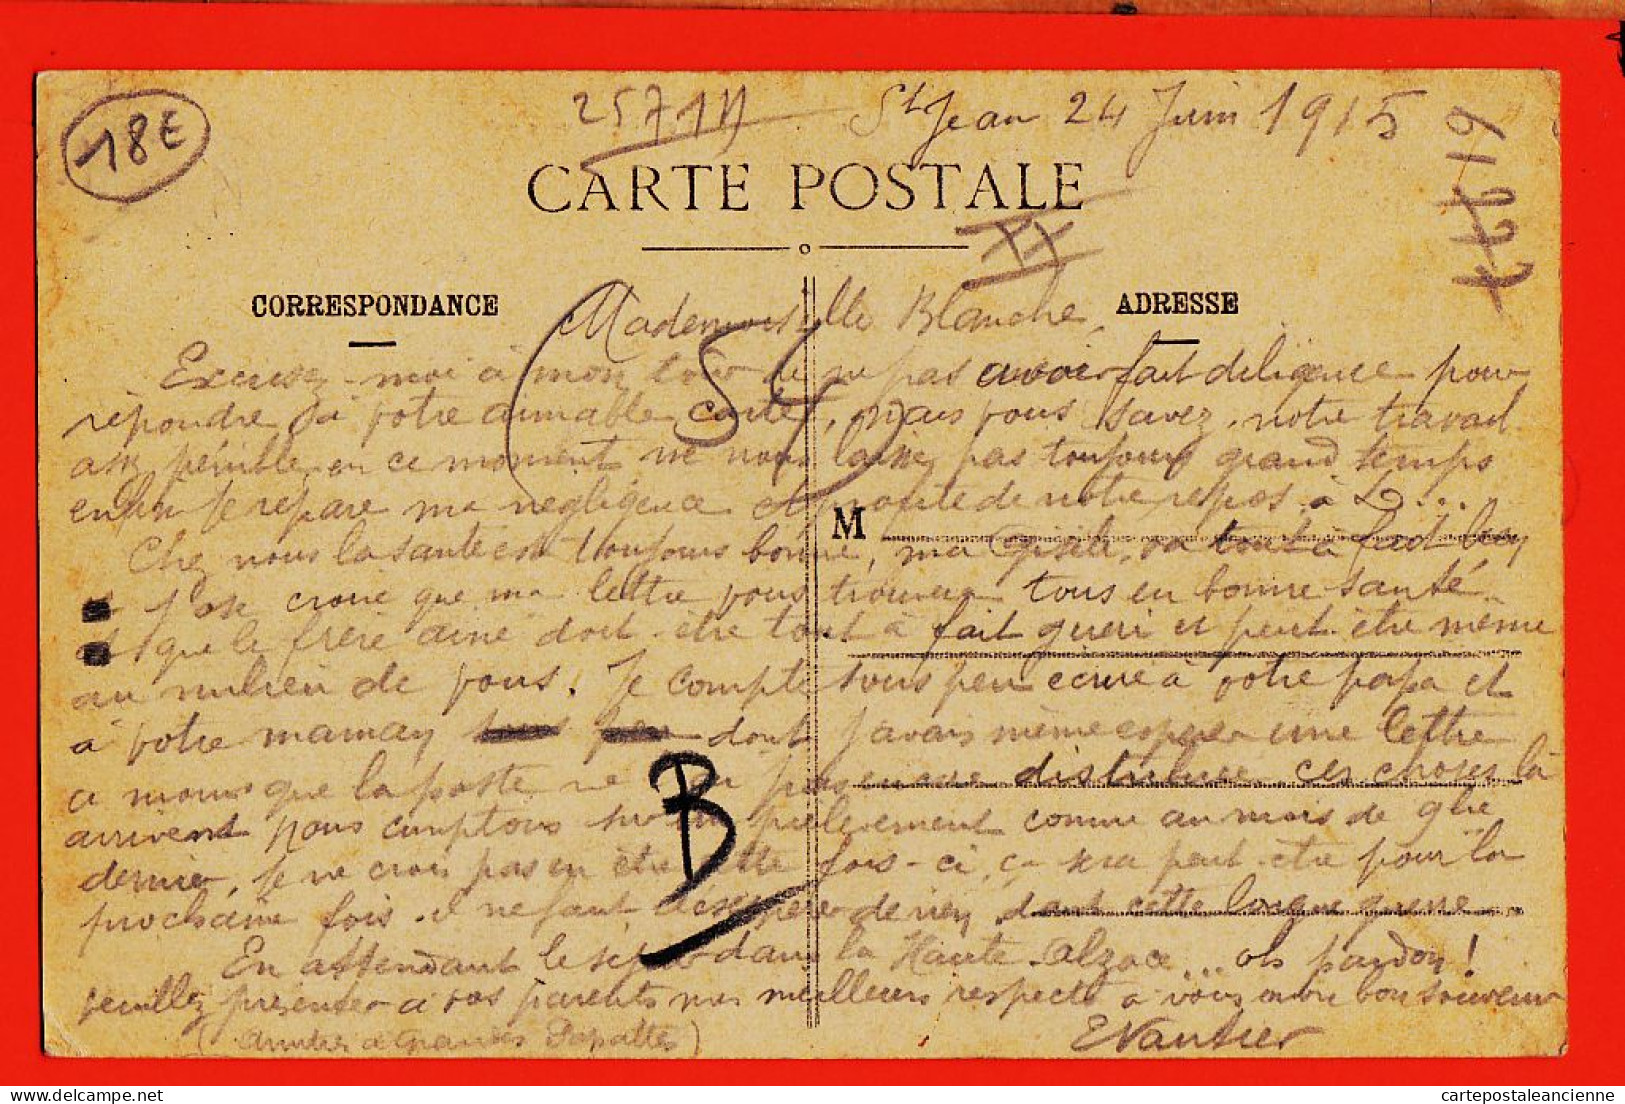 18E
2571N
St Jean 24 Juin 1915
CARTE POSTALE
XX
CORRESPONDANCE
ADRESSE
Mademoiselle Blanche,
Excusez-moi à mon tour de ne pas avoir fait diligence pour
répondre à votre aimable carte, mais vous savez, notre travail
assez pénible en ce moment ne nous laisse pas toujours grand temps
enfin je repare ma negligence et profite de notre repos à D....
M
Chez nous la santé est toujours bonne, ma Gisèle va tout à fait bien
j'ose croire que ma lettre vous trouvera tous en bonne santé
et que le frère ainé doit être tout à fait guéri et peut être même
au milieu de vous. Je compte sous peu ecrire à votre papa et
à votre maman dont j'avais même espéré une lettre
a moins que la poste ne l'ai pas encore distribuée, ces choses là
arrivent. Nous comptons sur un prélèvement comme au mois de
dernier, je ne crois pas en être cette fois-ci, ça sera peut-être pour la
prochaine fois. il ne faut désespérer de rien dans cette longue guerre
En attendant le séjour dans la Haute Alzace... oh pardon!
veuillez presenter à vos parents mes meilleurs respects à vous mon bon souvenir
EVautier
B